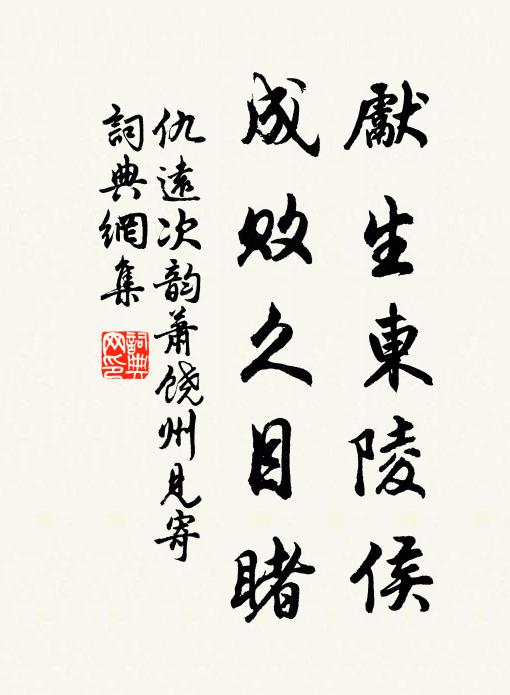 獻生東陵侯
成敗久目睹
仇遠次韵萧饶州見寄
詞典網集
詞典
网印